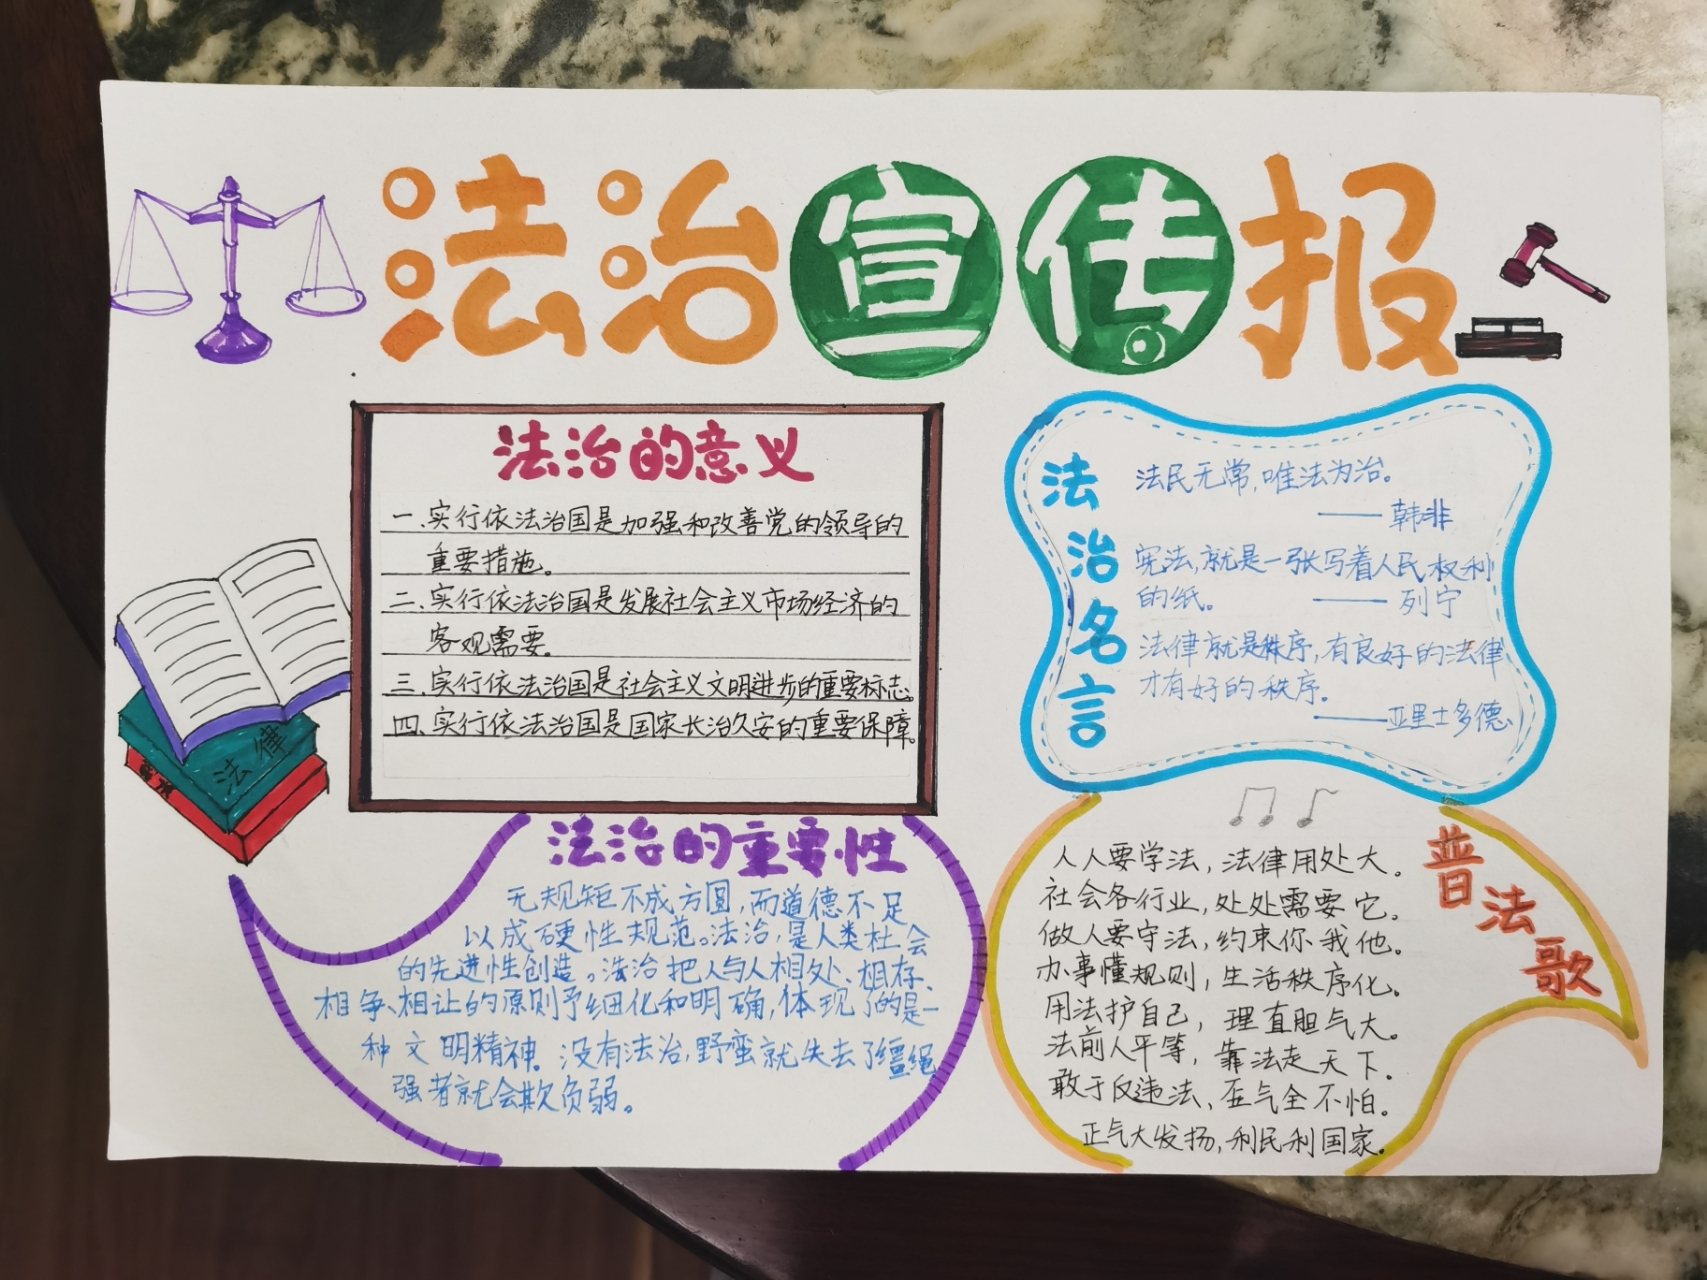 法治宣传报
法治的意义
一.实行依法治国是加强和改善党的领导的
重要措施。
二.实行依法治国是发展社会主义市场经济的
客观需要。
三.实行依法治国是社会主义文明进步的重要标志。
四.实行依法治国是国家长治久安的重要保障。
法律
法治名言
法民无常,唯法为治。
——韩非
宪法,就是一张写着人民权利
的纸。 ——列宁
法律就是秩序,有良好的法律
才有好的秩序。
——亚里士多德
法治的重要性
无规矩不成方圆,而道德不足
以成硬性规范。法治,是人类社会
的先进性创造。法治把人与人相处、相存、
相争、相让的原则予细化和明确,体现了的是一
种文明精神。没有法治,野蛮就失去了缰绳
强者就会欺负弱。
普法歌
人人要学法,法律用处大。
社会各行业,处处需要它。
做人要守法,约束你我他。
办事懂规则,生活秩序化。
用法护自己,理直胆气大。
法前人平等,靠法走天下。
敢于反违法,歪气全不怕。
正气大发扬,利民利国家。